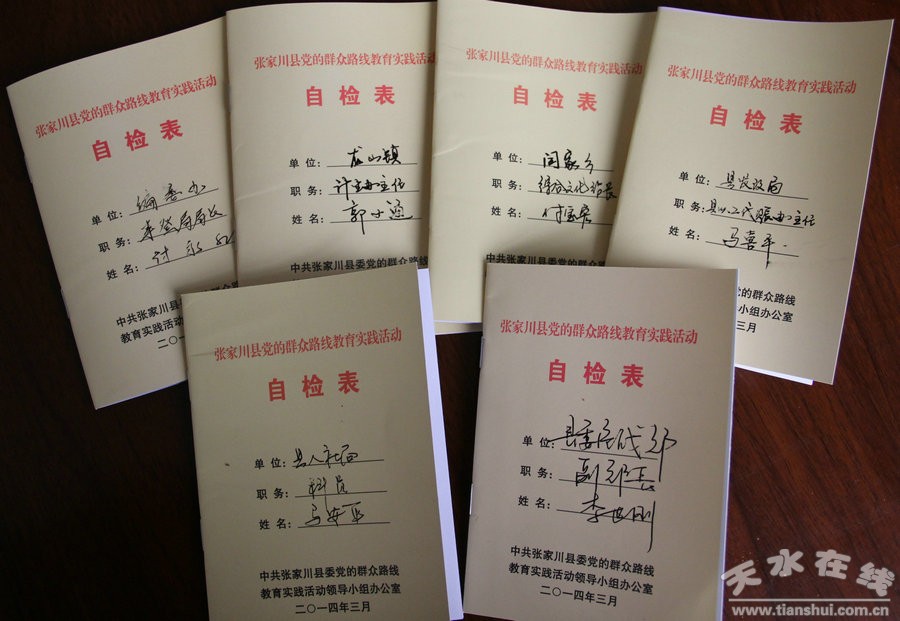 张家川县党的群众路线教育实践活动
自检表
单位:
职务:
姓名:
中共张家川县委党的群众路
教育实践活动
二〇一
张家川县党的群众路线教育实践活动
自检表
单位: 龙山镇
职务: 计生办主任
姓名: 郭小通
中共张家川县委党的群众路线
张家川县党的群众路线教育实践活动
自检表
单位: 闫家乡
职务: 综合文化站长
姓名:
中共张家川县委党的群众路线
张家川县党的群众路线教育实践活动
自检表
单位: 县发改局
职务: 县以工代赈办主任
姓名: 马喜平
党的群众路线
导小组办公室
三月
张家川县党的群众路线教育实践活动
自检表
单位: 县人社局
职务: 科员
姓名: 马安平
中共张家川县委党的群众路线
教育实践活动领导小组办公室
二〇一四年三月
张家川县党的群众路线教育实践活动
自检表
单位: 县委统战部
职务: 副部长
姓名: 李世刚
中共张家川县委党的群众路线
教育实践活动领导小组办公室
二〇一四年三月
天水在线
www.tianshui.com.cn